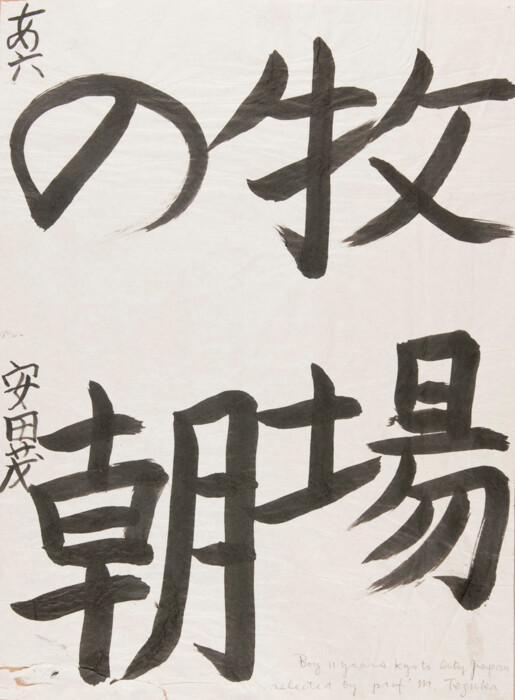 牧場
の朝
あ六
安田茂
Boy 11 years Kyoto City Japan
selected by prof. M. Tezuka